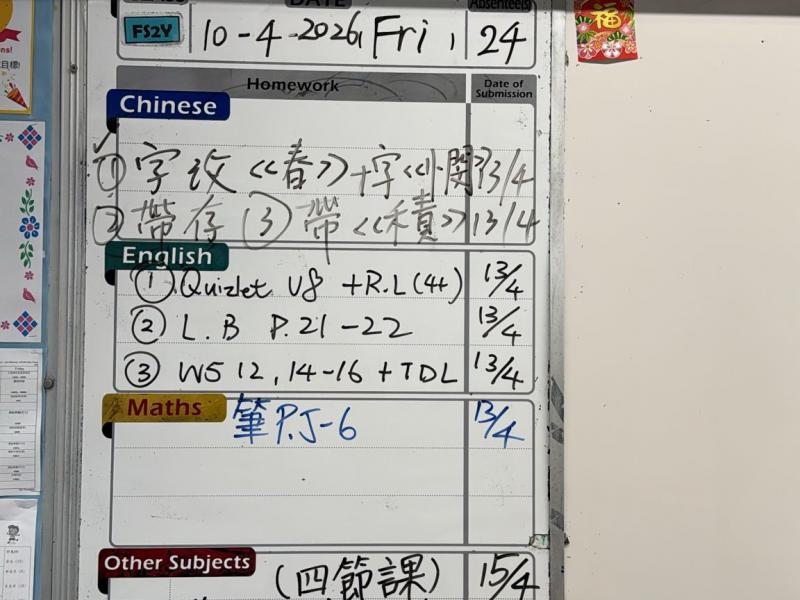 DATE
Absentee(s)
FS2Y 10-4-2026, Fri, 24
Homework
Date of Submission
Chinese
① 字 《春》+字 13/4
② 帶存 ③ 帶《積》13/4
English
① Quizlet U8 +R.L(4t) 13/4
② L.B P.21-22 13/4
③ WS 12, 14-16 + TDL 13/4
Maths 筆 P.5-6 13/4
Other Subjects
(四節課) 15/4
福
目標!